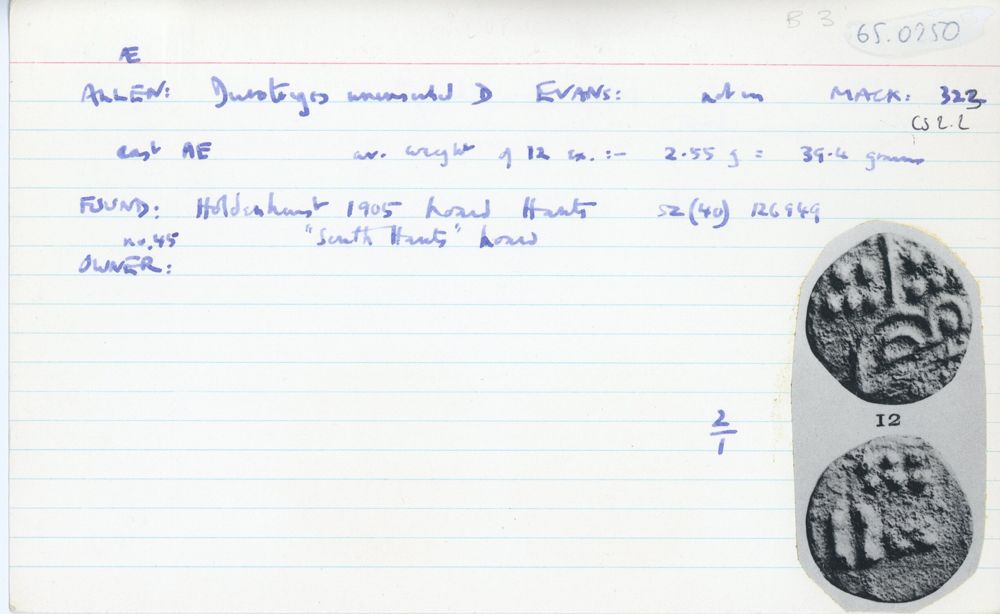 B 3 65.0950
Æ
ALLEN: Durotriges uninscribed D EVANS: not in MACK: 322
CS 2.2
cast AE av. weight of 12 ex. :- 2.55 g = 39.4 grains
FOUND: Holdenhurst 1905 hoard Hants SZ (40) 126949
no. 45 "South Hants" hoard
OWNER:
12
2
1